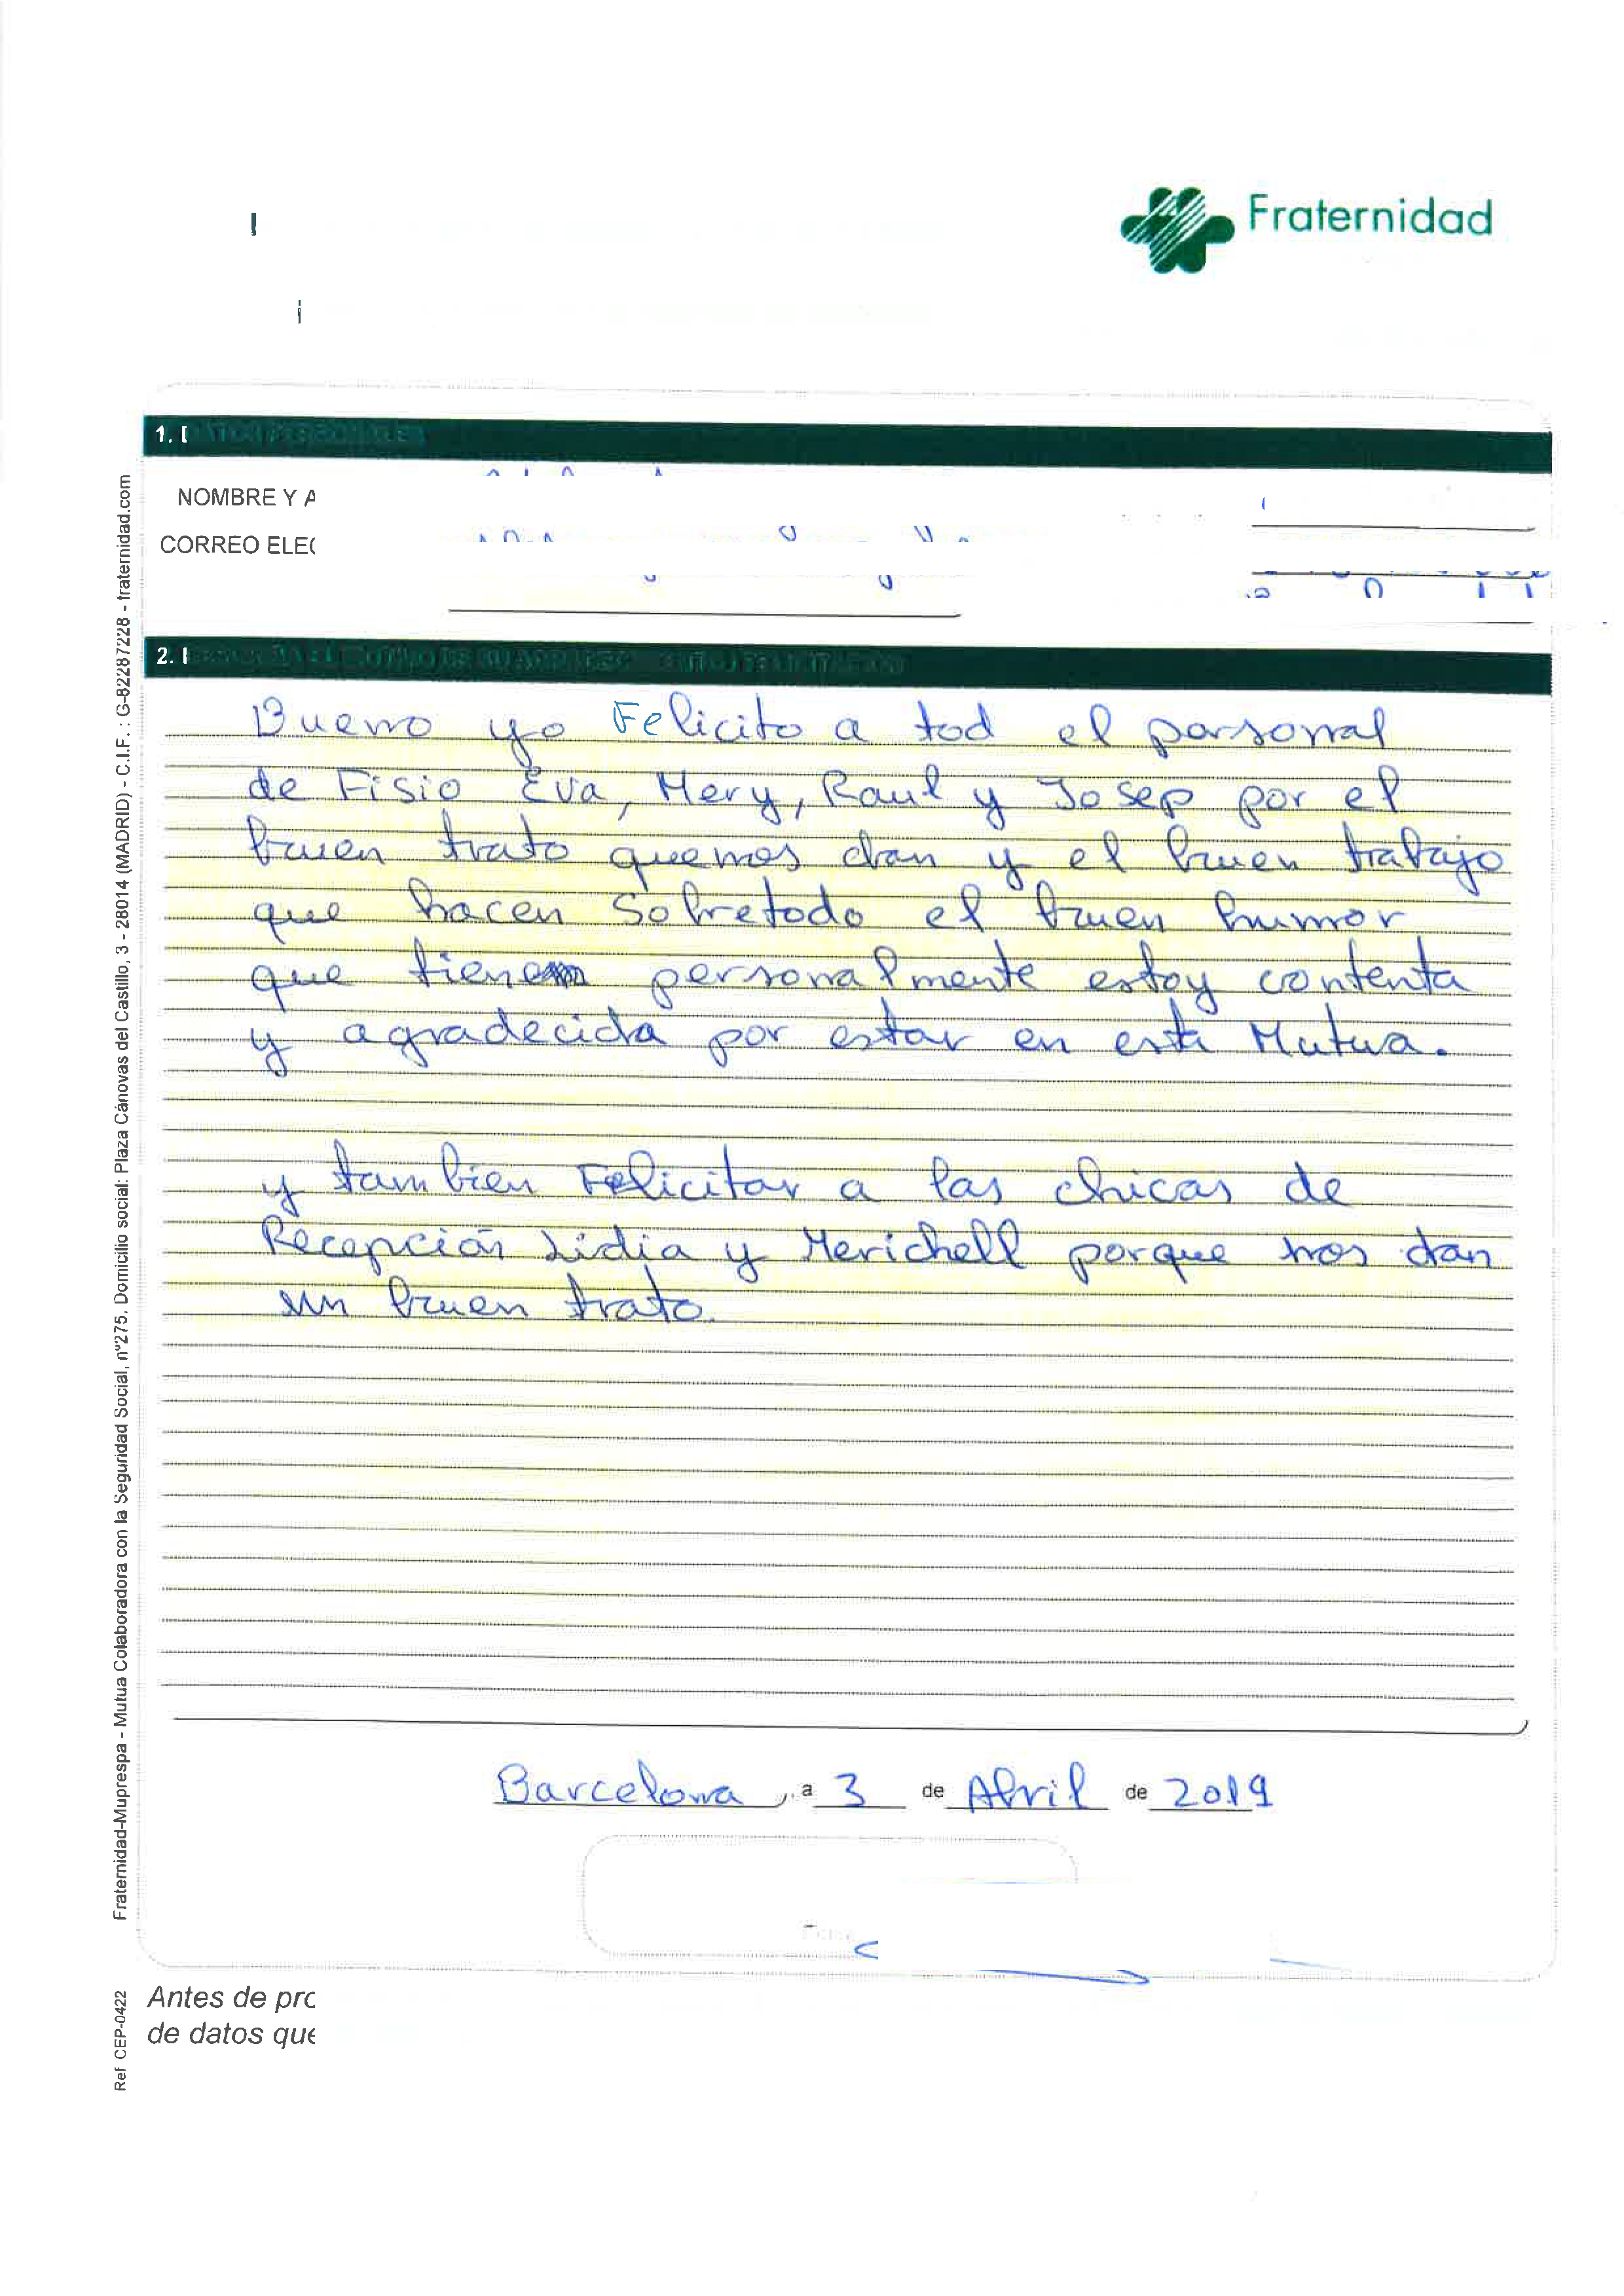 Fraternidad
1.
NOMBRE Y A
CORREO ELEC
2.
Bueno yo Felicito a tod el personal
de Fisio Eva, Mery, Raul y Josep por el
buen trato quenos dan y el buen trabajo
que hacen Sobretodo el buen humor
que tienen personalmente estoy contenta
y agradecida por estar en esta Mutua.
y tambien Felicitar a las chicas de
Recepción Lidia y Merichell porque nos dan
un buen trato.
Barcelona, a 3 de Abril de 2019
Antes de pro
de datos que
Fraternidad-Muprespa - Mutua Colaboradora con la Seguridad Social, nº275. Domicilio social: Plaza Cánovas del Castillo, 3 - 28014 (MADRID) - C.I.F. : G-82287228 - fraternidad.com
Ref CEP-0422